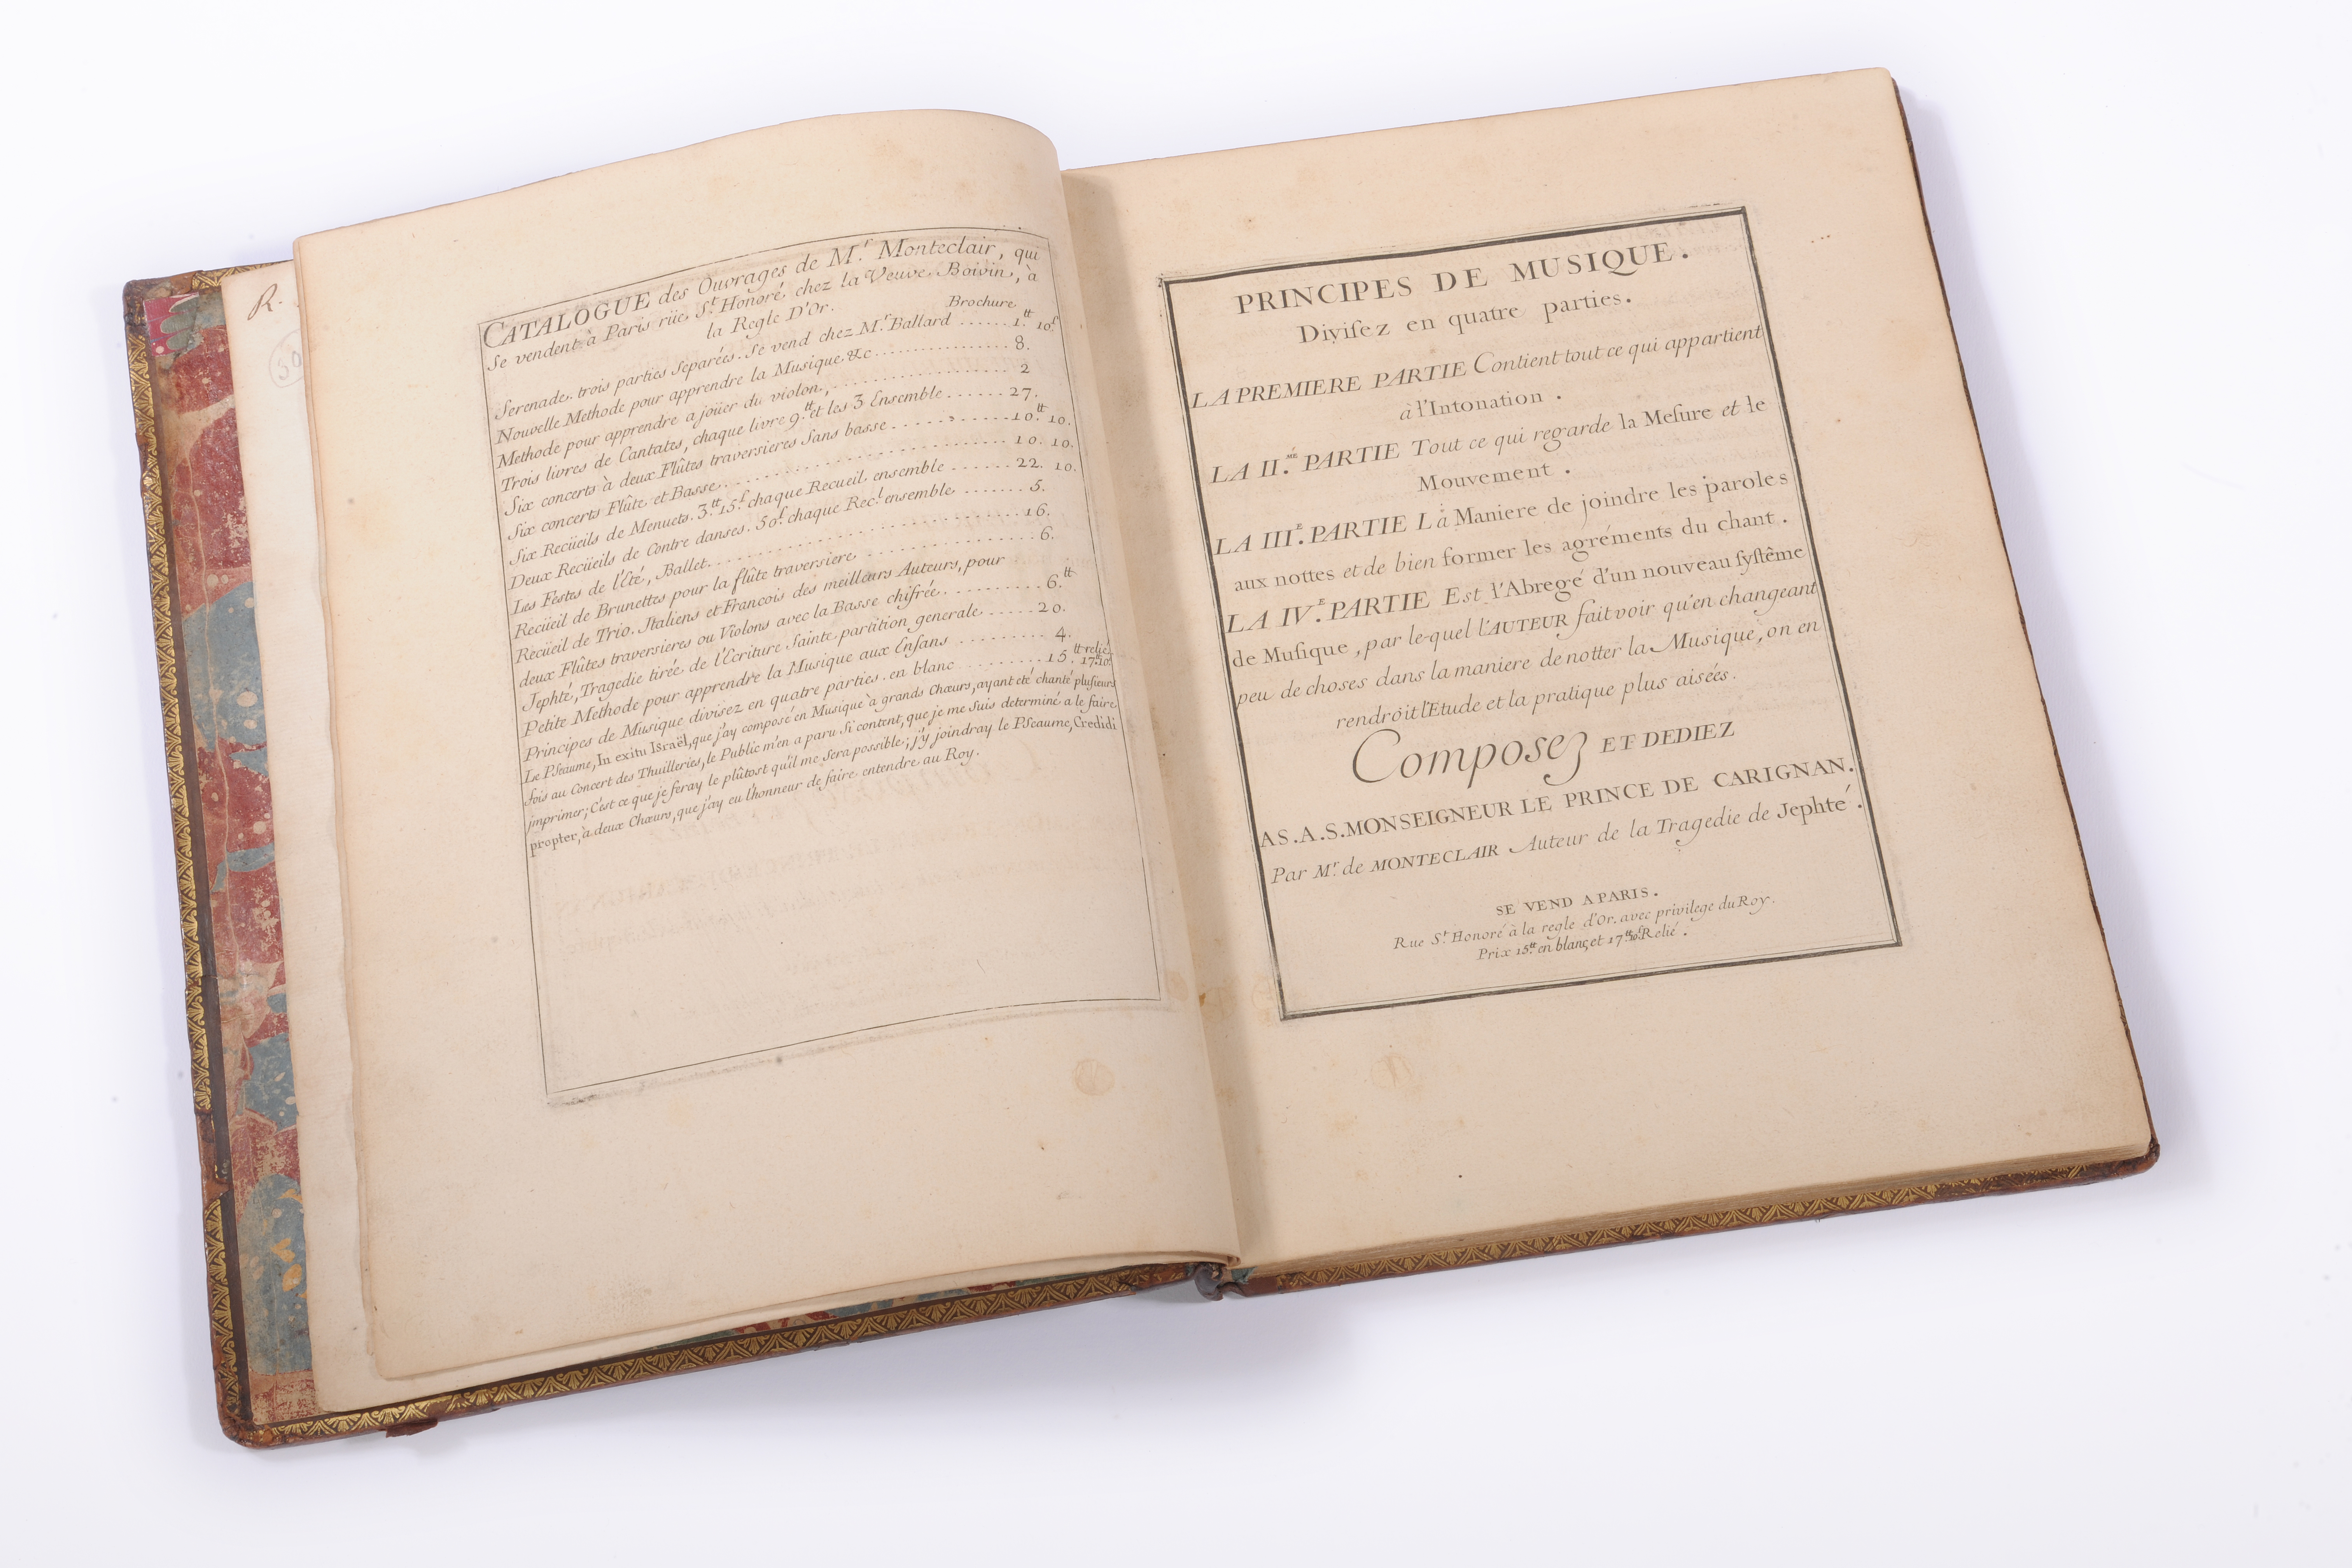 R.
50
CATALOGUE des Ouvrages de M.r Monteclair, qui
se vendent à Paris rüe S.t Honoré chez la Veuve Boivin, à
la Regle D'Or.
Brochure
Serenade. trois parties separées. se vend chez M.r Ballard ...... 1.tt 10.s
Nouvelle Methode pour apprendre la Musique. &c ................ 8.
Methode pour apprendre a joüer du violon, .................... 2
Trois livres de Cantates, chaque livre 9.tt et les 3 Ensemble ...... 27.
Six concerts à deux Flûtes traversieres sans basse ............ 10.tt 10.
Six concerts Flûte et Basse .............................. 10. 10.
Six Recüeils de Menuets. 3.tt 15.s chaque Recueil ensemble ...... 22. 10.
Deux Recüeils de Contre danses. 50.s chaque Rec.l ensemble ....... 5.
Les Festes de l'Eté, Ballet .............................. 16.
Recüeil de Brunettes pour la flûte traversiere ................ 6.
Recüeil de Trio. Italiens et Francois des meilleurs Auteurs, pour
deux Flûtes traversieres ou Violons avec la Basse chifrée .......... 6.tt
Jephté, Tragedie tirée de l'Ecriture Sainte, partition generale ..... 20.
Petite Methode pour apprendre la Musique aux Enfans .......... 4.
Principes de Musique divisez en quatre parties. en blanc ......... 15.tt relié 17.tt 10.s
Le Pseaume, In exitu Israël, que j'ay composé en Musique à grands Chœurs, ayant eté chanté plusieurs
fois au Concert des Thuilleries, le Public m'en a paru si content, que je me suis determiné a le faire
jmprimer; C'est ce que je feray le plûtost qu'il me sera possible; j'y joindray le Pseaume, Credidi
propter, à deux Chœurs, que j'ay eu l'honneur de faire entendre au Roy.
PRINCIPES DE MUSIQUE.
Divisez en quatre parties.
LA PREMIERE PARTIE Contient tout ce qui appartient
à l'Intonation.
LA II.ME PARTIE Tout ce qui regarde la Mesure et le
Mouvement.
LA III.E PARTIE La Maniere de joindre les paroles
aux nottes et de bien former les agréments du chant.
LA IV.E PARTIE Est l'Abregé d'un nouveau systême
de Musique, par le-quel l'AUTEUR fait voir qu'en changeant
peu de choses dans la maniere de notter la Musique, on en
rendroit l'Etude et la pratique plus aisées.
Composez ET DEDIEZ
A S.A.S. MONSEIGNEUR LE PRINCE DE CARIGNAN.
Par M.r de MONTECLAIR Auteur de la Tragedie de Jephté.
SE VEND A PARIS.
Rue S.t Honoré à la regle d'Or. avec privilege du Roy.
Prix 15.tt en blanc, et 17.tt 10.s Relié.